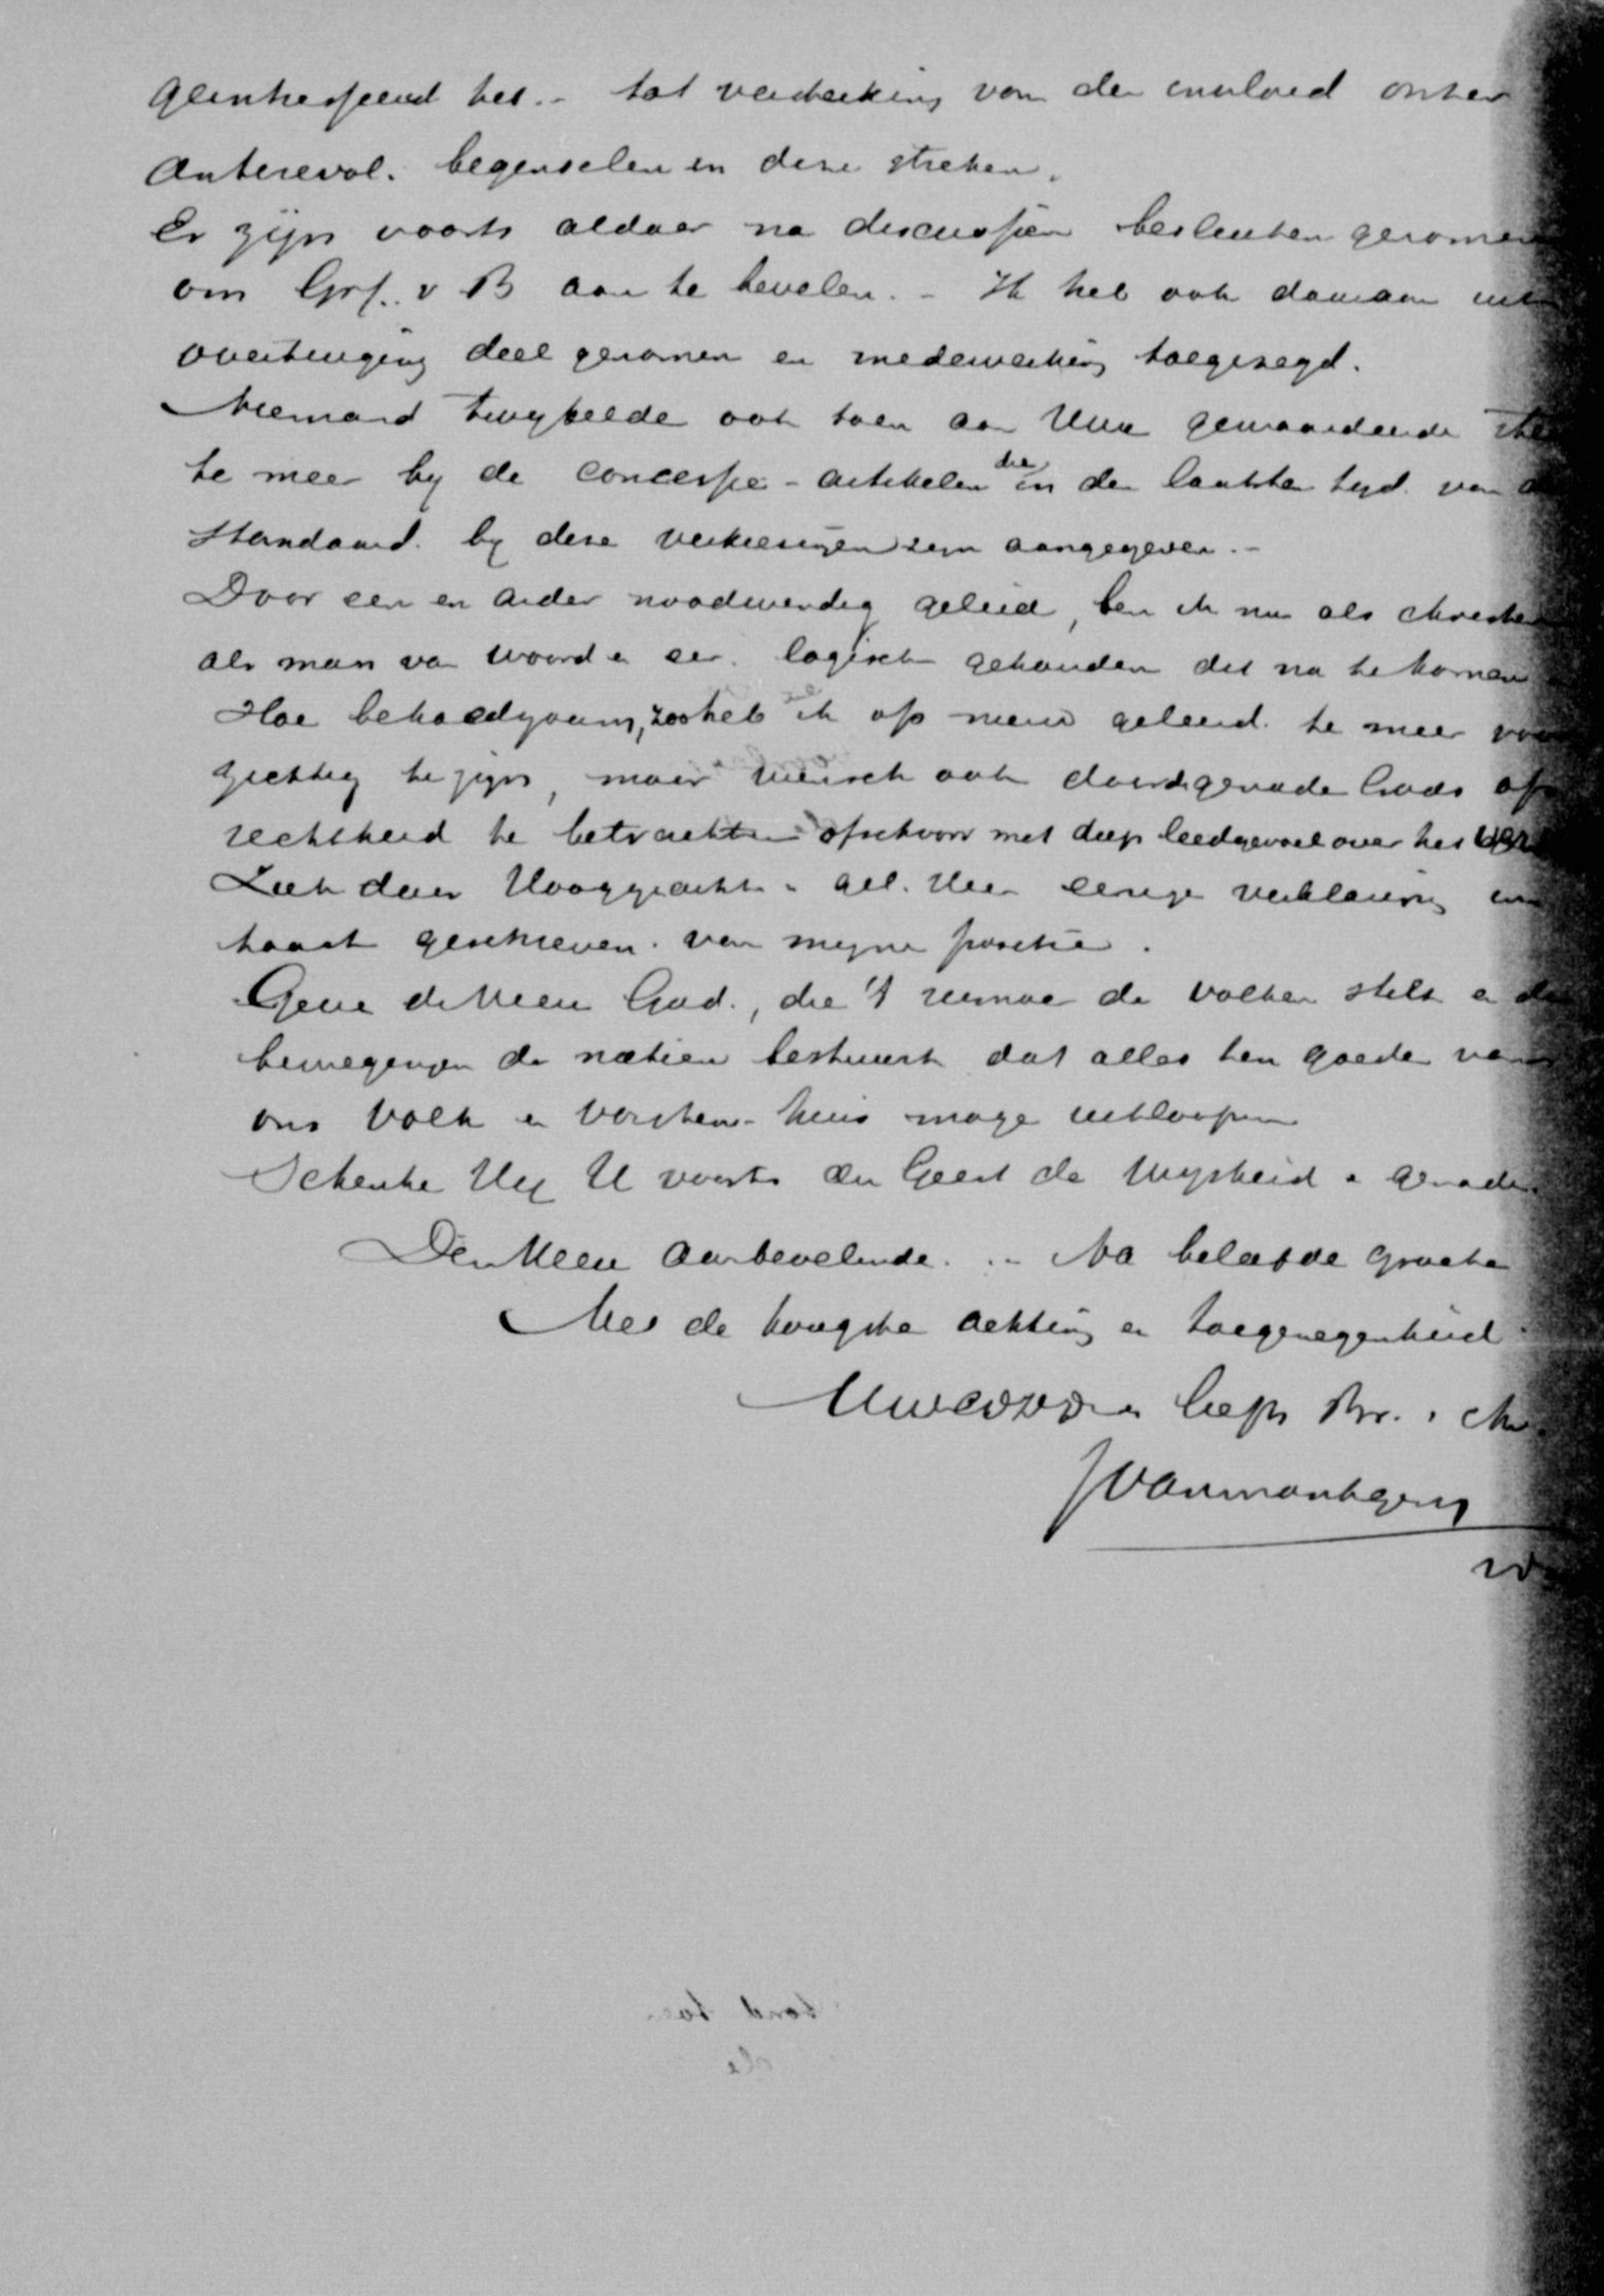 geinhesfeerd het. - tot versterking van den invloed onzer
Antirevol. beginselen in deze streken.
Er zijn voorts aldaar na discussien besluiten genomen
om Grf. v B aan te bevelen. - Ik heb ook daaraan uit
overtuiging deel genomen en medewerking toegezegd.
Niemand twijfelde ook toen aan Uwe gewaardeerde
te meer bij de concessie-artikelen die in den laatsten tijd van
Standaard bij deze verkiezingen zijn aangegeven. -
Door een en ander noodwendig geleid, ben ik nu als christen
als man van woord en eer logisch gehouden dit na te komen
Hoe behoedzaam, zoo heb ik op nieuw geleerd te meer voor
zichtig te zijn, maar wensch ook door de genade Gods op
rechtheid te betrachten ofschoon met diep leedgevoel over het
Ziet daar Hooggeachte en gel. Heer eenige verklaring in
haast geschreven van mijne positie.
Geve de Heere God, die 't rumoer der volken stilt en de
bewegingen der natien bestuurt dat alles ten goede van
ons Volk en Vorstenhuis moge uitloopen
Schenke Hij U voorts den Geest der Wijsheid en genade.
Den Heere aanbevelende. .- Na beleefde groete
Met de hoogste achting en toegenegenheid
UwEDZD en liefh Br. i Chr.
J van Mantgem